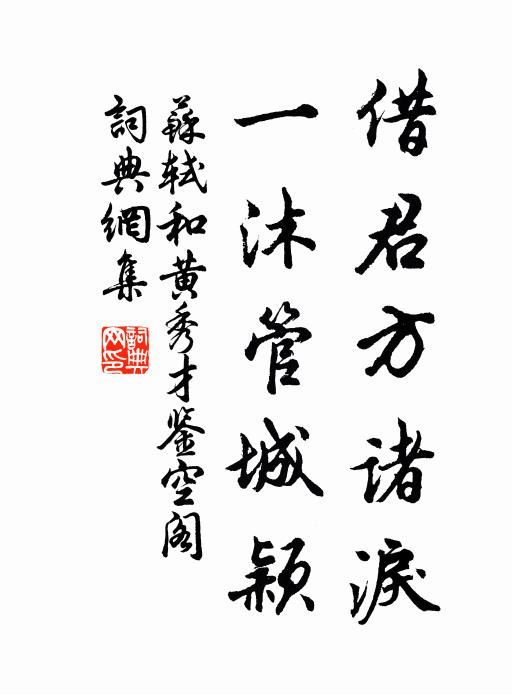 借君方諸淚
一沐管城穎
蘇軾和黄秀才鉴空阁
詞典網集
詞典
网印